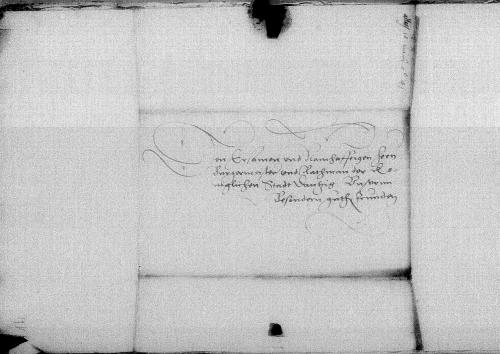 Den Ersamen vnd Namhafftigen hern
Burgermeister vnd Rathman der Ko-
niglichen Stadt Dantzig Vnsernn
besondern guthen freunden